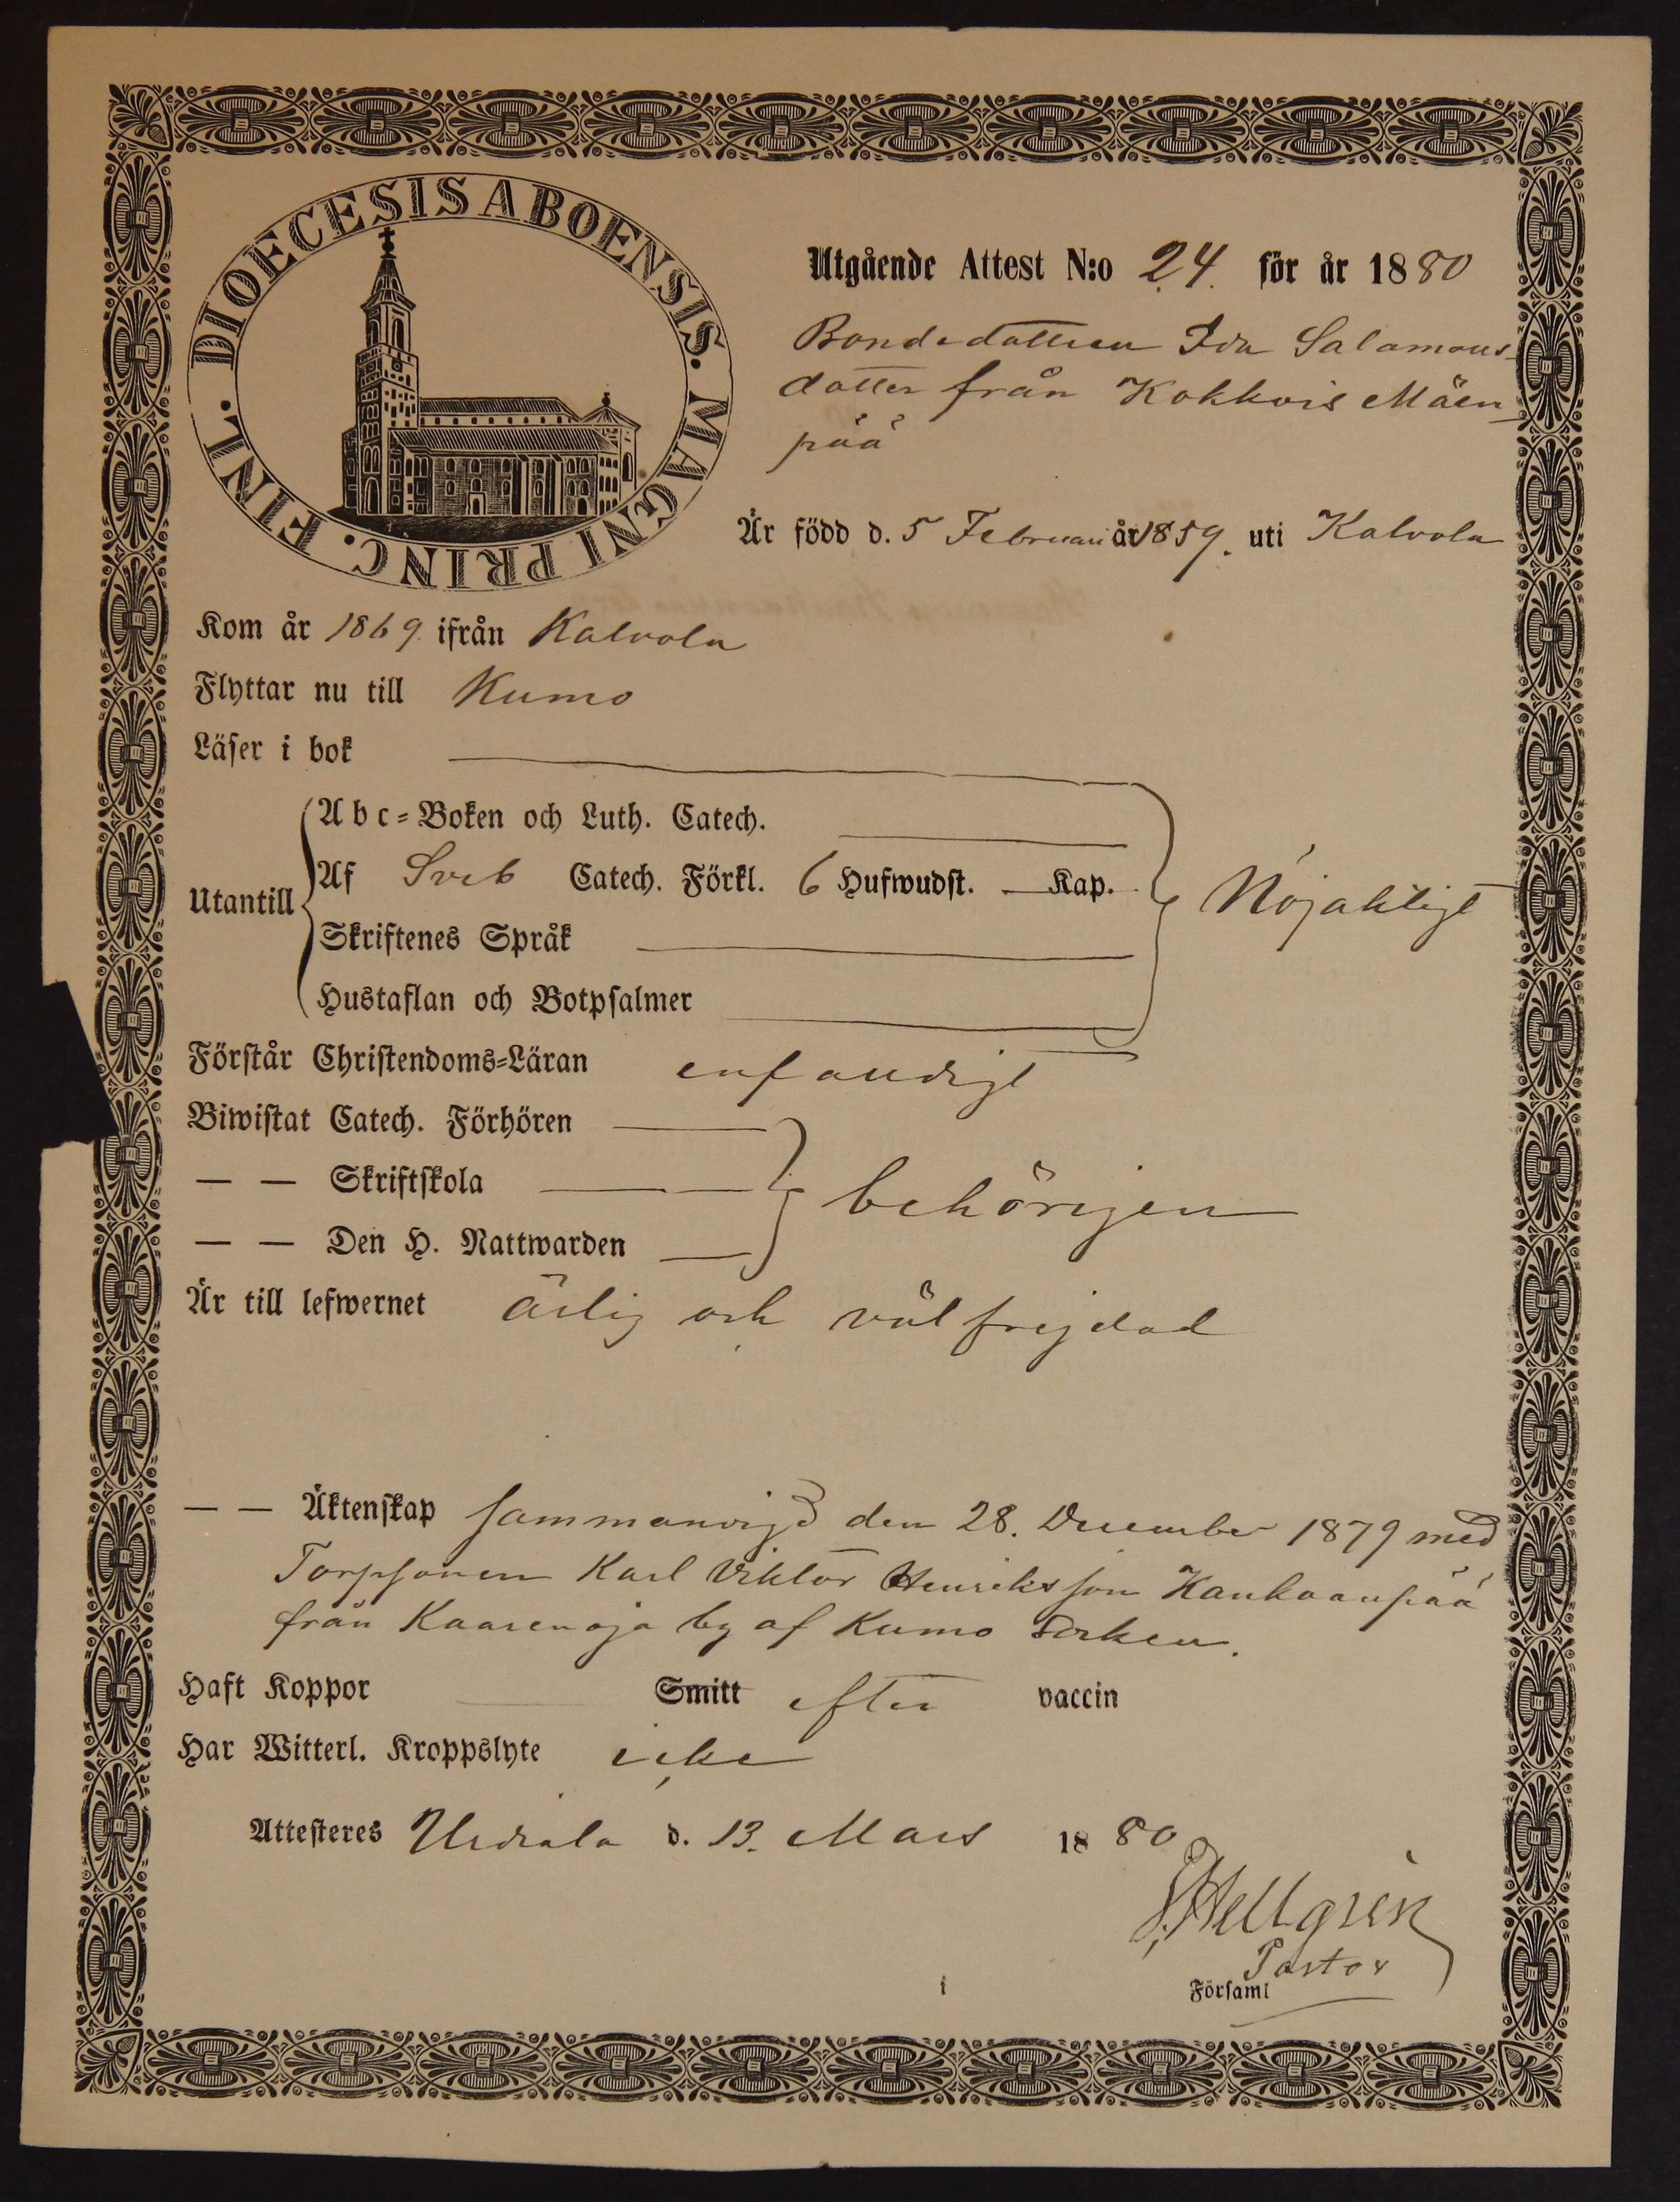 DIOECESIS ABOENSIS. MAGNI PRINC. FINL.
Utgående Attest N:o 24. för år 1880
Bondedottren Ida Salamons-
dotter från Kokkois Mäen
pää
Är född d. 5 Februari år 1859. uti Kalvola
Kom år 1869 ifrån Kalvola
Flyttar nu till Kumo
Läser i bok
Abc-Boken och Luth. Catech.
Utantill Af Sveb Catech. Förkl. 6 Hufwudst. — Kap. Nöjaktigt
Skriftenes Språk
Hustaflan och Botpsalmer
Förstår Christendoms-Läran enfaldigt
Biwistat Catech. Förhören
— — Skriftskola behörigen
— — Den H. Nattwarden
Är till lefwernet ärlig och välfrejdad
— — Äktenskap sammanvigd den 28. December 1879 med
Torpsonen Karl Viktor Henriksson Kankaanpää
från Kaarenoja by af Kumo Socken.
Haft Koppor Smitt efter vaccin
Har Witterl. Kroppslyte icke
Attesteres Urdiala d. 13. Mars 1880
Hellgrén
Pastor
i Församl